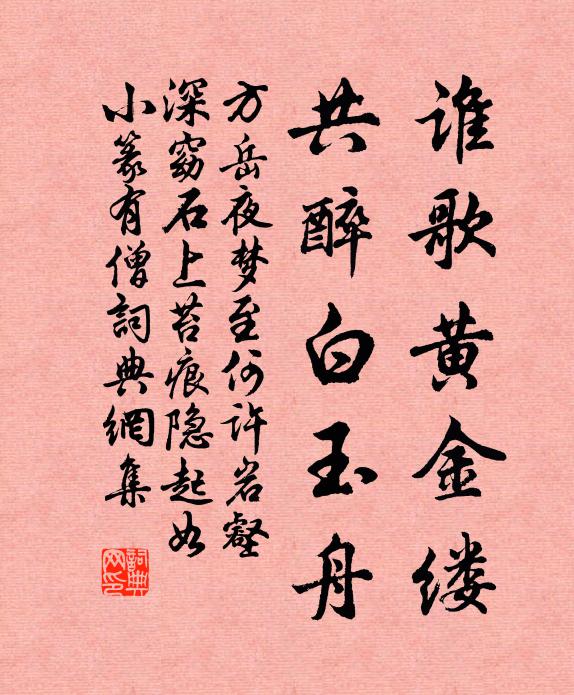 谁歌黄金缕
共醉白玉舟
方岳夜梦至何许岩壑
深窈石上苔痕隐起如
小篆有僧词典網集
詞典
网印